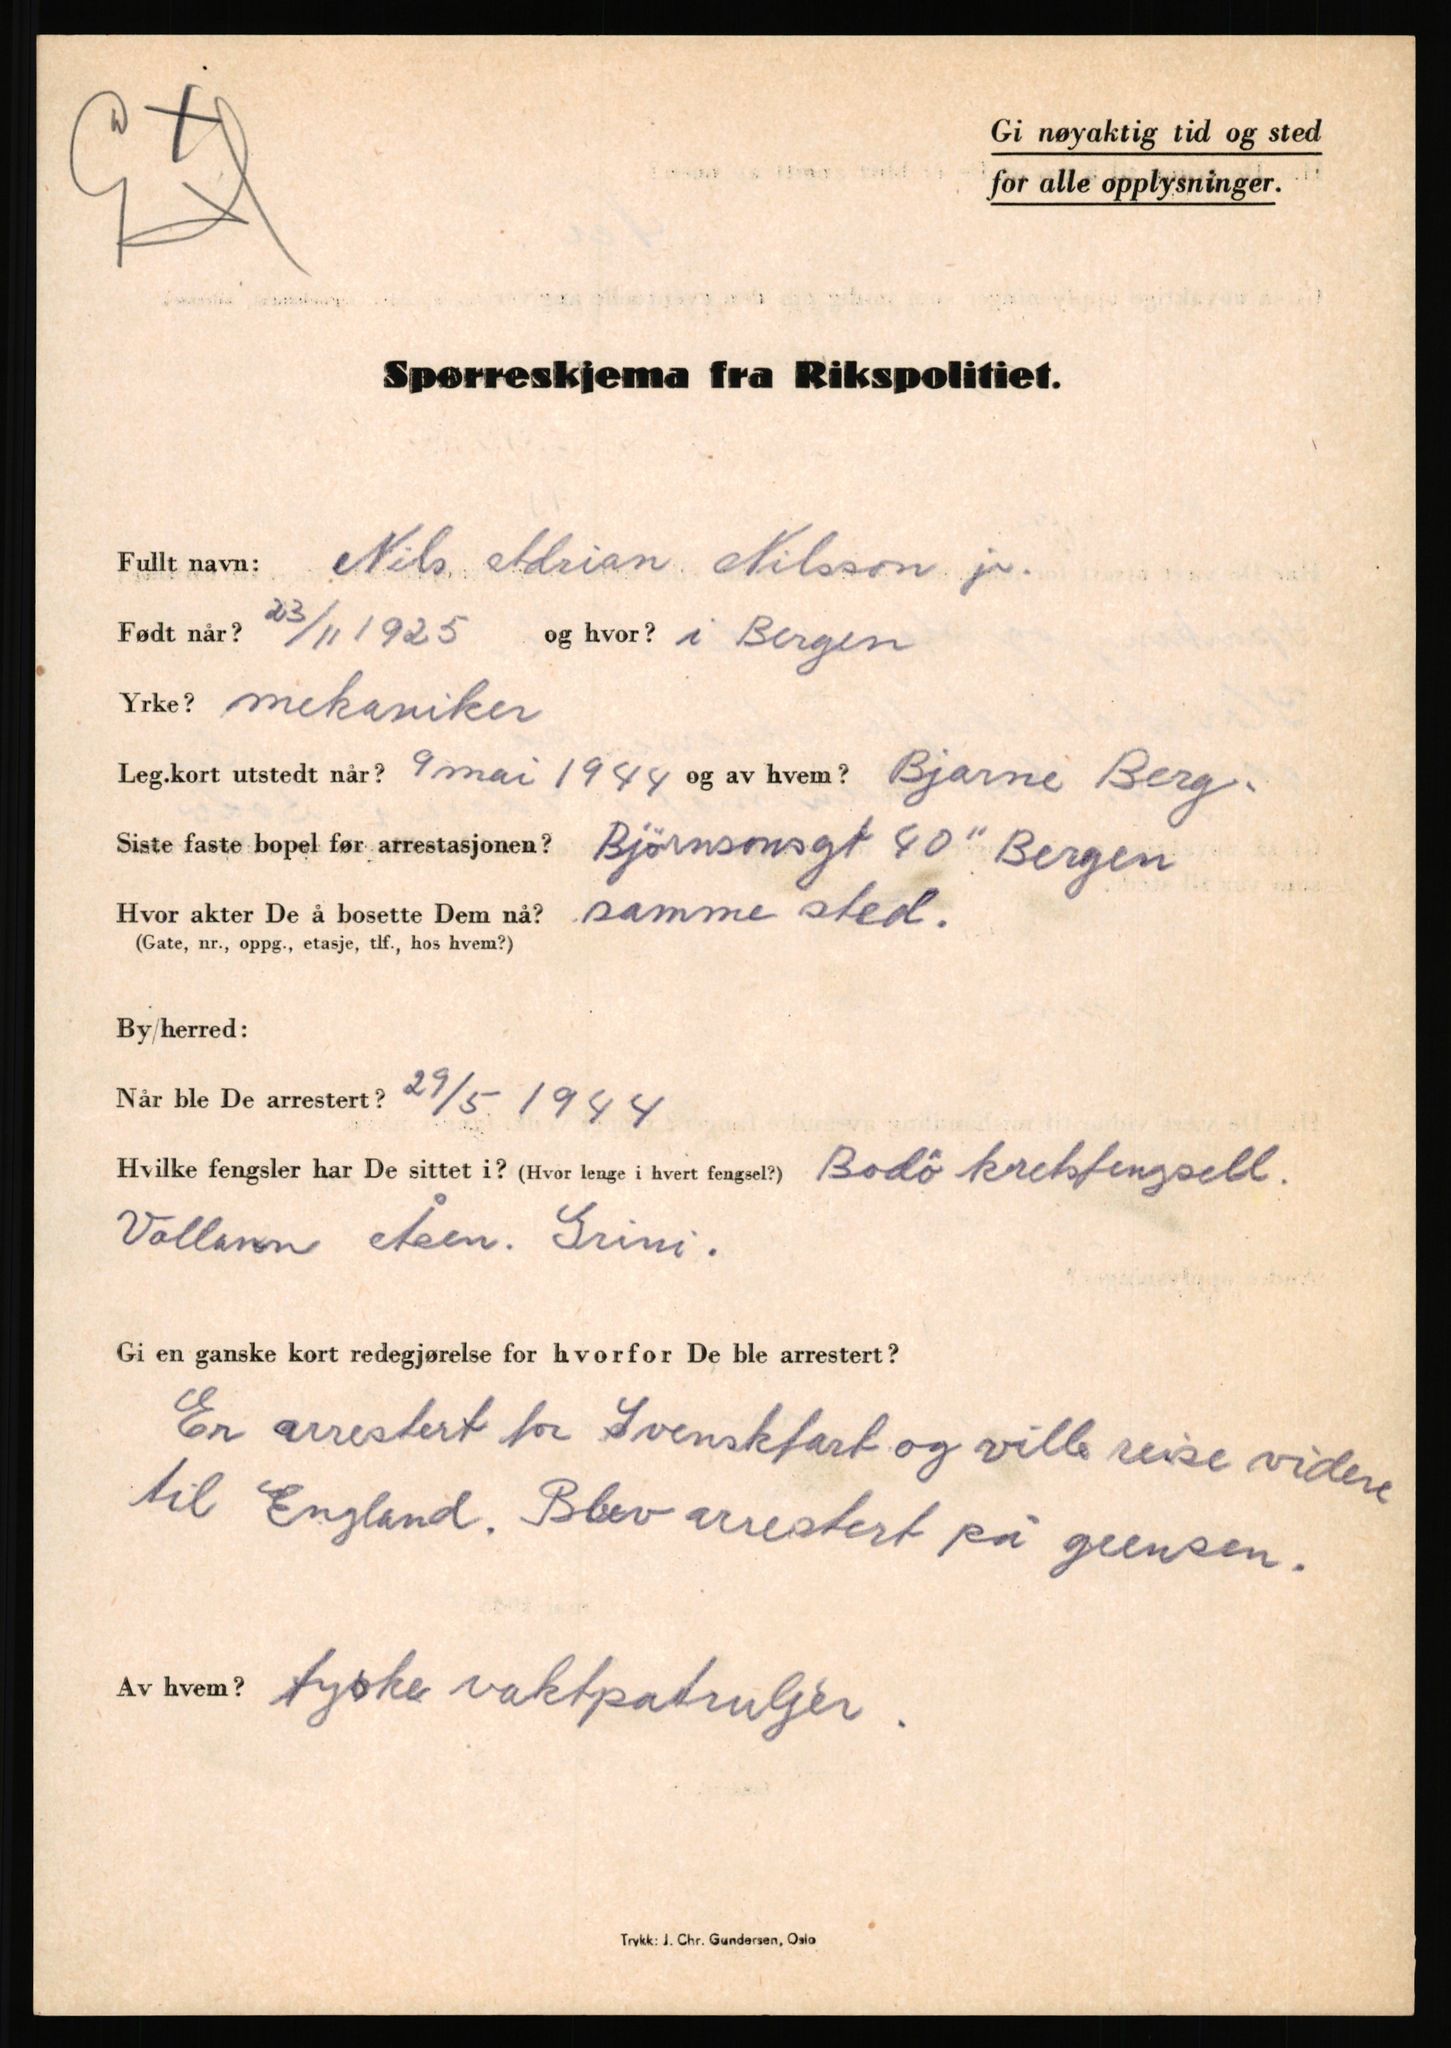 Gi nøyaktig tid og sted
for alle opplysninger.
Spørreskjema fra Rikspolitiet.
Fullt navn: Nils Adrian Nilsson jr.
Født når? 23/11 1925 og hvor? i Bergen
Yrke? mekaniker
Leg.kort utstedt når? 9 mai 1944 og av hvem? Bjarne Berg.
Siste faste bopel før arrestasjonen? Björnsonsgt 40" Bergen
Hvor akter De å bosette Dem nå? samme sted.
(Gate, nr., oppg., etasje, tlf., hos hvem?)
By/herred:
Når ble De arrestert? 29/5 1944
Hvilke fengsler har De sittet i? (Hvor lenge i hvert fengsel?) Bodö kretsfengsell.
Vollann Åsen. Grini.
Gi en ganske kort redegjørelse for hvorfor De ble arrestert?
Er arrestert for Svensktart og ville reise videre
til England. Blev arrestert på grensen.
Av hvem? tyske vaktpatruljer.
Trykk: J. Chr. Gundersen, Oslo